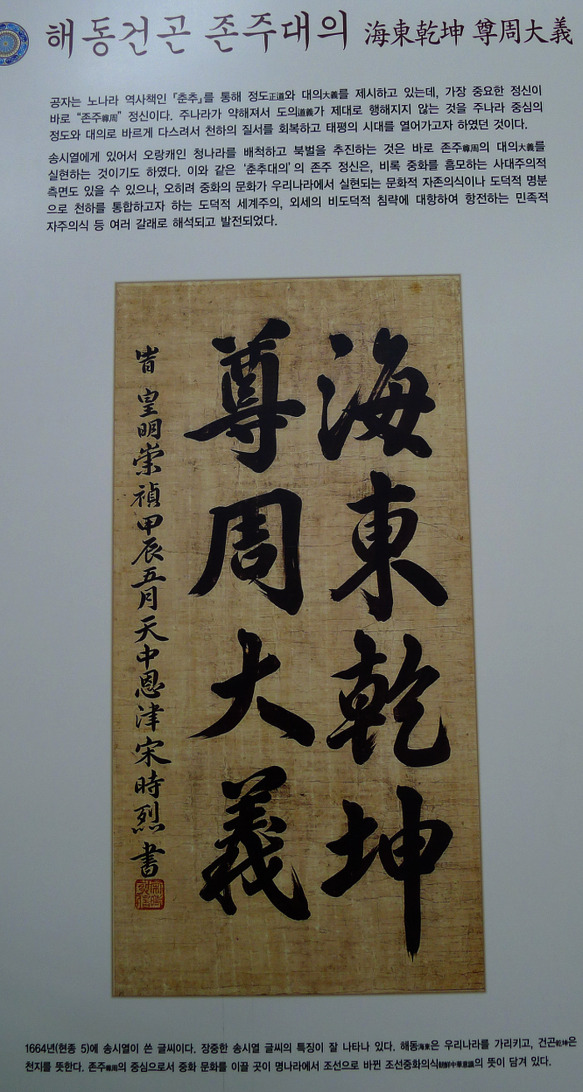 해동건곤 존주대의 海東乾坤 尊周大義
공자는 노나라 역사책인 「춘추」를 통해 정도正道와 대의大義를 제시하고 있는데, 가장 중요한 정신이
바로 “존주尊周” 정신이다. 주나라가 약해져서 도의道義가 제대로 행해지지 않는 것을 주나라 중심의
정도와 대의로 바르게 다스려서 천하의 질서를 회복하고 태평의 시대를 열어가고자 하였던 것이다.
송시열에게 있어서 오랑캐인 청나라를 배척하고 북벌을 추진하는 것은 바로 존주尊周의 대의大義를
실현하는 것이기도 하였다. 이와 같은 ‘춘추대의’의 존주 정신은, 비록 중화를 흠모하는 사대주의적
측면도 있을 수 있으나, 오히려 중화의 문화가 우리나라에서 실현되는 문화적 자존의식이나 도덕적 명분
으로 천하를 통합하고자 하는 도덕적 세계주의, 외세의 비도덕적 침략에 대항하여 항전하는 민족적
자주의식 등 여러 갈래로 해석되고 발전되었다.
海東乾坤
尊周大義
旹 皇明崇禎甲辰五月天中恩津宋時烈 書
1664년(현종 5)에 송시열이 쓴 글씨이다. 장중한 송시열 글씨의 특징이 잘 나타나 있다. 해동海東은 우리나라를 가리키고, 건곤乾坤은
천지를 뜻한다. 존주尊周의 중심으로서 중화 문화를 이끌 곳이 명나라에서 조선으로 바뀐 조선중화의식朝鮮中華意識의 뜻이 담겨 있다.